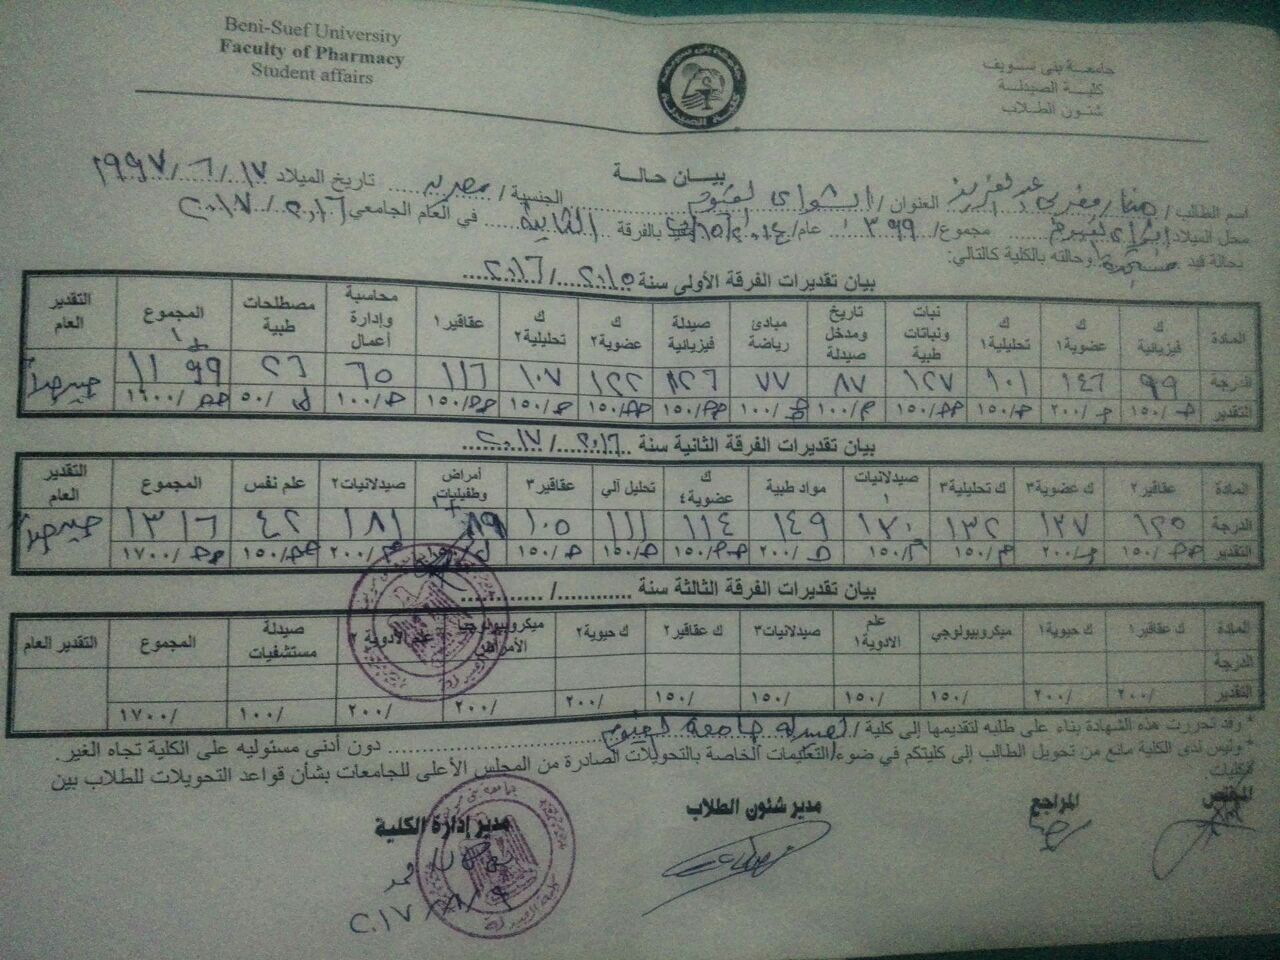 Beni-Suef University
Faculty of Pharmacy
Student affairs
جامعة بنى سويف
كلية الصيدلة
شئون الطلاب
بيـــان حالـــة
اسم الطالب / العنوان / الشواى الفيوم الجنسية / مصرية تاريخ الميلاد ١٧ / ٦ / ١٩٩٧
محل الميلاد مجموع / ٣٩٩ عام / بالفرقة الثانية في العام الجامعي ٢٠١٦ / ٢٠١٧
بحالة قيد وحالته بالكلية كالتالي:
بيان تقديرات الفرقة الأولى سنة ٢٠١٥ / ٢٠١٦
المادة ك فيزيائية ك عضوية١ ك تحليلية١ نبات ونباتات طبية تاريخ ومدخل صيدلة مبادئ رياضة صيدلة فيزيائية ك عضوية٢ ك تحليلية٢ عقاقير١ محاسبة وإدارة أعمال مصطلحات طبية المجموع التقدير العام
الدرجة ٩٩ ١٤٦ ١٠١ ١٢٧ ٨٧ ٧٧ ١٢٦ ١٢٢ ١٠٧ ١١٦ ٦٥ ٢٦ ١١٩٩ جيد جداً
التقدير ١٥٠/ ٢٠٠/ ١٥٠/ ١٥٠/ ١٠٠/ ١٠٠/ ١٥٠/ ١٥٠/ ١٥٠/ ١٥٠/ ١٠٠/ ٥٠/ ١٦٠٠/
بيان تقديرات الفرقة الثانية سنة ٢٠١٦ / ٢٠١٧
المادة عقاقير ٢ ك عضوية٣ ك تحليلية٣ صيدلانيات ١ مواد طبية ك عضوية٤ تحليل آلي عقاقير ٣ أمراض وطفيليات صيدلانيات٢ علم نفس المجموع التقدير العام
الدرجة ١٢٥ ١٣٧ ١٣٢ ١٣٠ ١٤٩ ١١٤ ١١١ ١٠٥ ٨٩ ١٨١ ٤٢ ١٣١٦ جيد جداً
التقدير ١٥٠/ ٢٠٠/ ١٥٠/ ١٥٠/ ٢٠٠/ ١٥٠/ ١٥٠/ ١٥٠/ ٢٠٠/ ١٥٠/ ١٧٠٠/
بيان تقديرات الفرقة الثالثة سنة ............/ ............
المادة ك عقاقير١ ك حيوية١ ميكروبيولوجي علم الادوية١ صيدلانيات٣ ك عقاقير٢ ك حيوية٢ ميكروبيولوجيا الأمراض علم الادوية ٢ صيدلة مستشفيات المجموع التقدير العام
الدرجة
التقدير ٢٠٠/ ٢٠٠/ ١٥٠/ ١٥٠/ ١٥٠/ ١٥٠/ ٢٠٠/ ٢٠٠/ ٢٠٠/ ١٠٠/ ١٧٠٠/
* وقد تحررت هذه الشهادة بناء على طلبه لتقديمها إلى كلية / لصيدلة جامعة لفيوم دون أدنى مسئوليه على الكلية تجاه الغير.
* وليس لدى الكلية مانع من تحويل الطالب إلى كليتكم في ضوء/التعليمات الخاصة بالتحويلات الصادرة من المجلس الأعلى للجامعات بشأن قواعد التحويلات للطلاب بين
الكليات
المختص المراجع مدير شئون الطلاب مدير إدارة الكلية
٢٠١٧/٨/٩